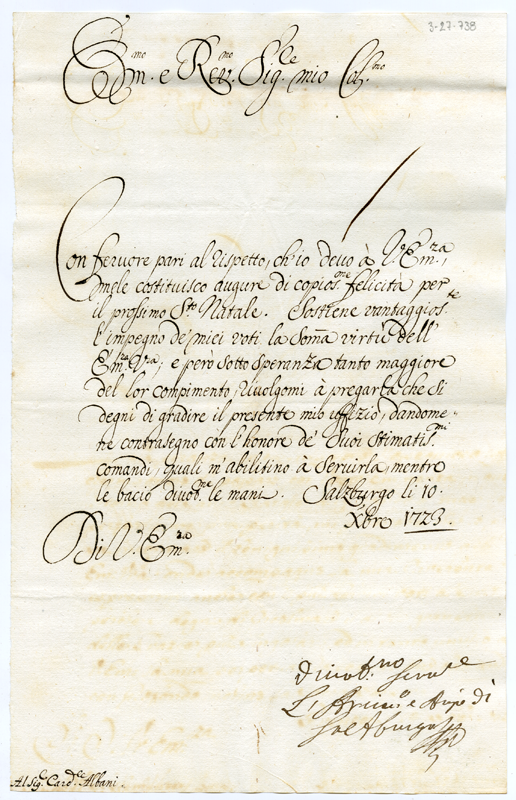 3-27-738
Em.mo e Rev.mo Sig.re mio Col.mo
Con feruore pari al rispetto, ch'io deuo à V. Em.za,
mele costituisco augure di copios.me felicità per
il prossimo S.to Natale. Sostiene vantaggios.te
l'impegno de' miei voti la Som̃a virtù dell'
Em.za V.ra; e però sotto speranza tanto maggiore
del lor compimento, riuolgomi à pregarla che si
degni di gradire il presente mio uffizio, dandome-
ne contrasegno con l'honore de' suoi stimatis.mi
comandi, quali m'abilitino à seruirla, mentre
le bacio diuot.me le mani. Salzburgo li 10.
Xbre 1723.
Di V. Em.za
Diuot.mo Seru.re
L'Arciu.o e Prñpe di
Salzburgo
Al Sig.r Card.le Albani.